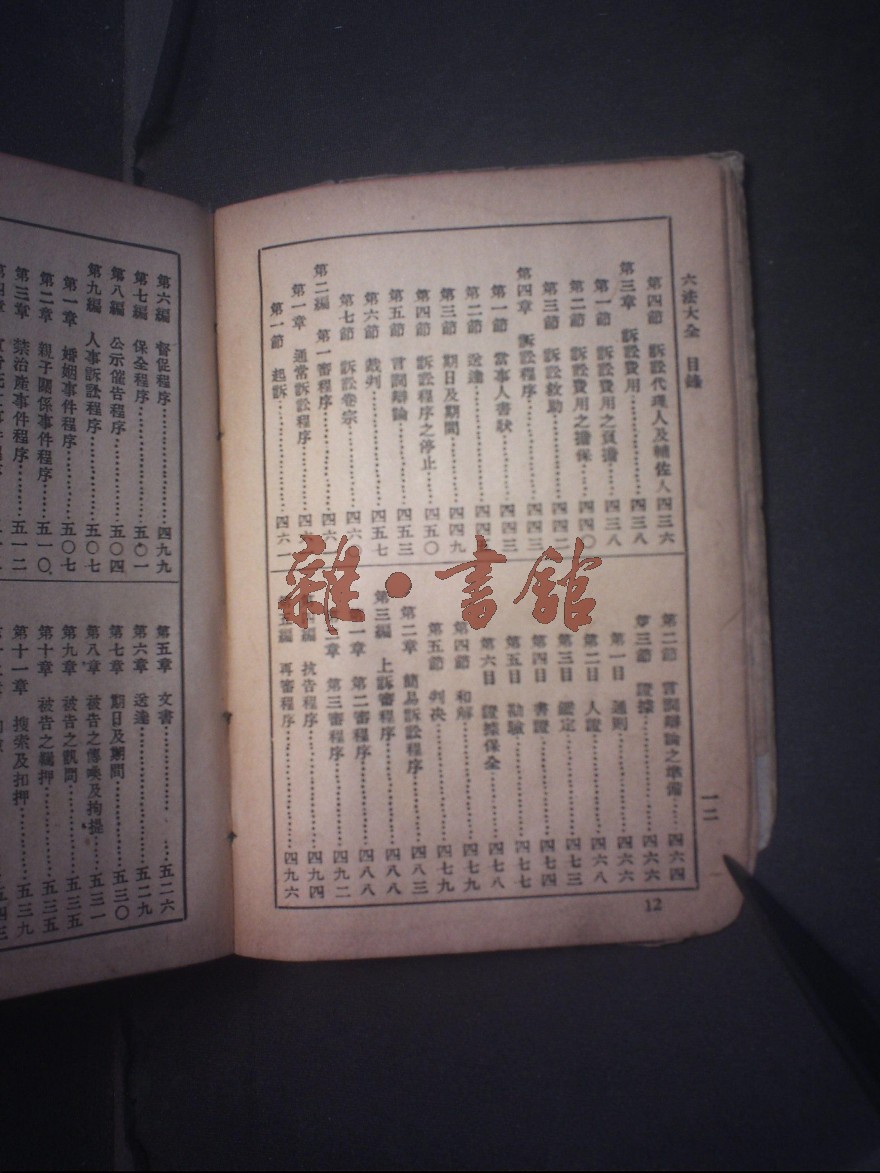 六法大全 目錄
第四節 訴訟代理人及輔佐人 四三六
第三章 訴訟費用………四三八
第一節 訴訟費用之負擔…四三八
第二節 訴訟費用之擔保…四四〇
第三節 訴訟救助………四四二
第四章 訴訟程序………四四三
第一節 當事人書狀………四四三
第二節 送達………四四
第三節 期日及期間………四四九
第四節 訴訟程序之停止…四五〇
第五節 言詞辯論………四五三
第六節 裁判………四五七
第七節 訴訟卷宗………四六
第二編 第一審程序………四六
第一章 通常訴訟程序………四
第一節 起訴………四六一
第二節 言詞辯論之準備…四六四
第三節 證據………四六六
第一目 通則………四六六
第二目 人證………四六八
第三目 鑑定………四七三
第四目 書證………四七四
第五目 勘驗………四七七
第六目 證據保全………四七八
第四節 和解………四七九
第五節 判決………四七九
第二章 簡易訴訟程序………四八三
第三編 上訴審程序………四八八
第一章 第二審程序………四八八
第二章 第三審程序………四九二
第四編 抗告程序………四九四
第五編 再審程序………四九六
一二
12
第六編 督促程序………四九九
第七編 保全程序………五〇一
第八編 公示催告程序………五〇四
第九編 人事訴訟程序………五〇七
第一章 婚姻事件程序………五〇七
第二章 親子關係事件程序…五一〇
第三章 禁治產事件程序………五一二
第五章 文書………五二六
第六章 送達………五二九
第七章 期日及期間………五三〇
第八章 被告之傳喚及拘提…五三一
第九章 被告之訊問………五三五
第十章 被告之羈押………五三五
第十一章 搜索及扣押………五三九
雜·書館